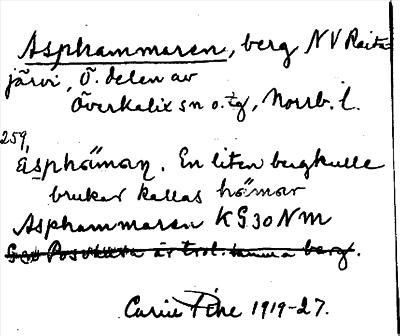 Asphammaren, berg NV Raita
järvi, Ö. delen av
Överkalix sn o. tg, Norrb. l.
259,
asphå̈maṛ. En liten bergkulle
brukar kallas hå̈mar
Asphammaren KG30Nm
är trol. samma berg.
Carin Pihl 1919-27.